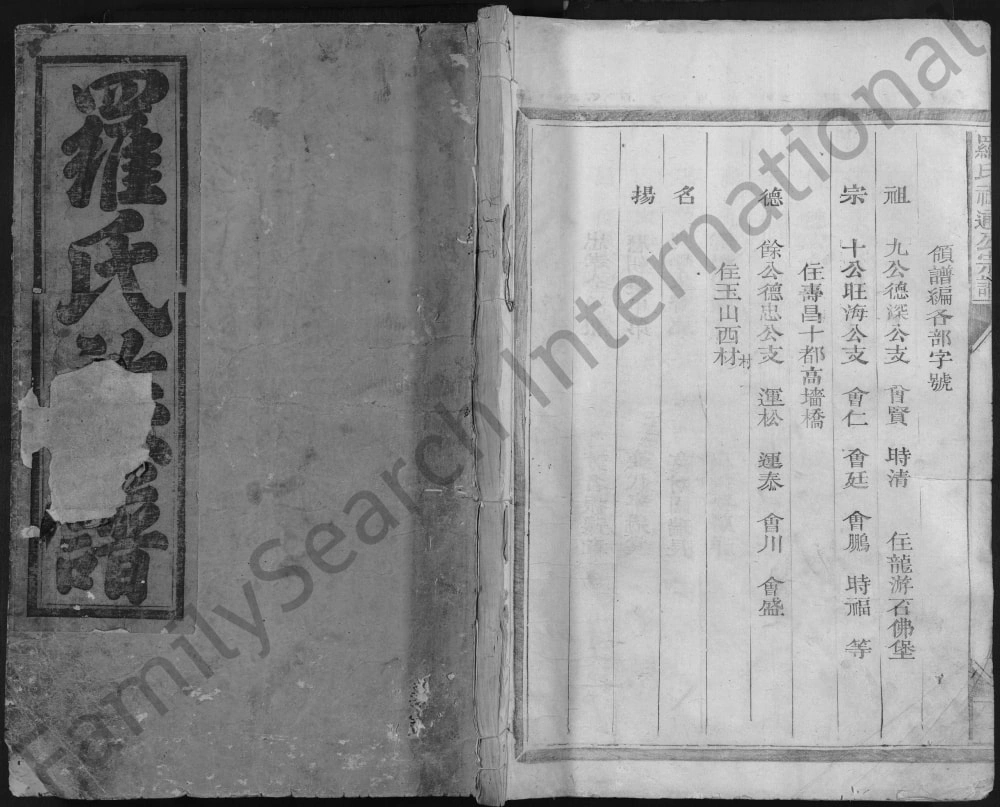 羅氏
譜
領譜編各部字號
祖 九公德深公支 會賢 時清 住龍游石佛堡
宗 十公旺海公支 會仁 會廷 會鵬 時福 等
住壽昌十都高墻橋
德 餘公德忠公支 運松 運泰 會川 會盛
住玉山西材
村
名
揚
FamilySearch International